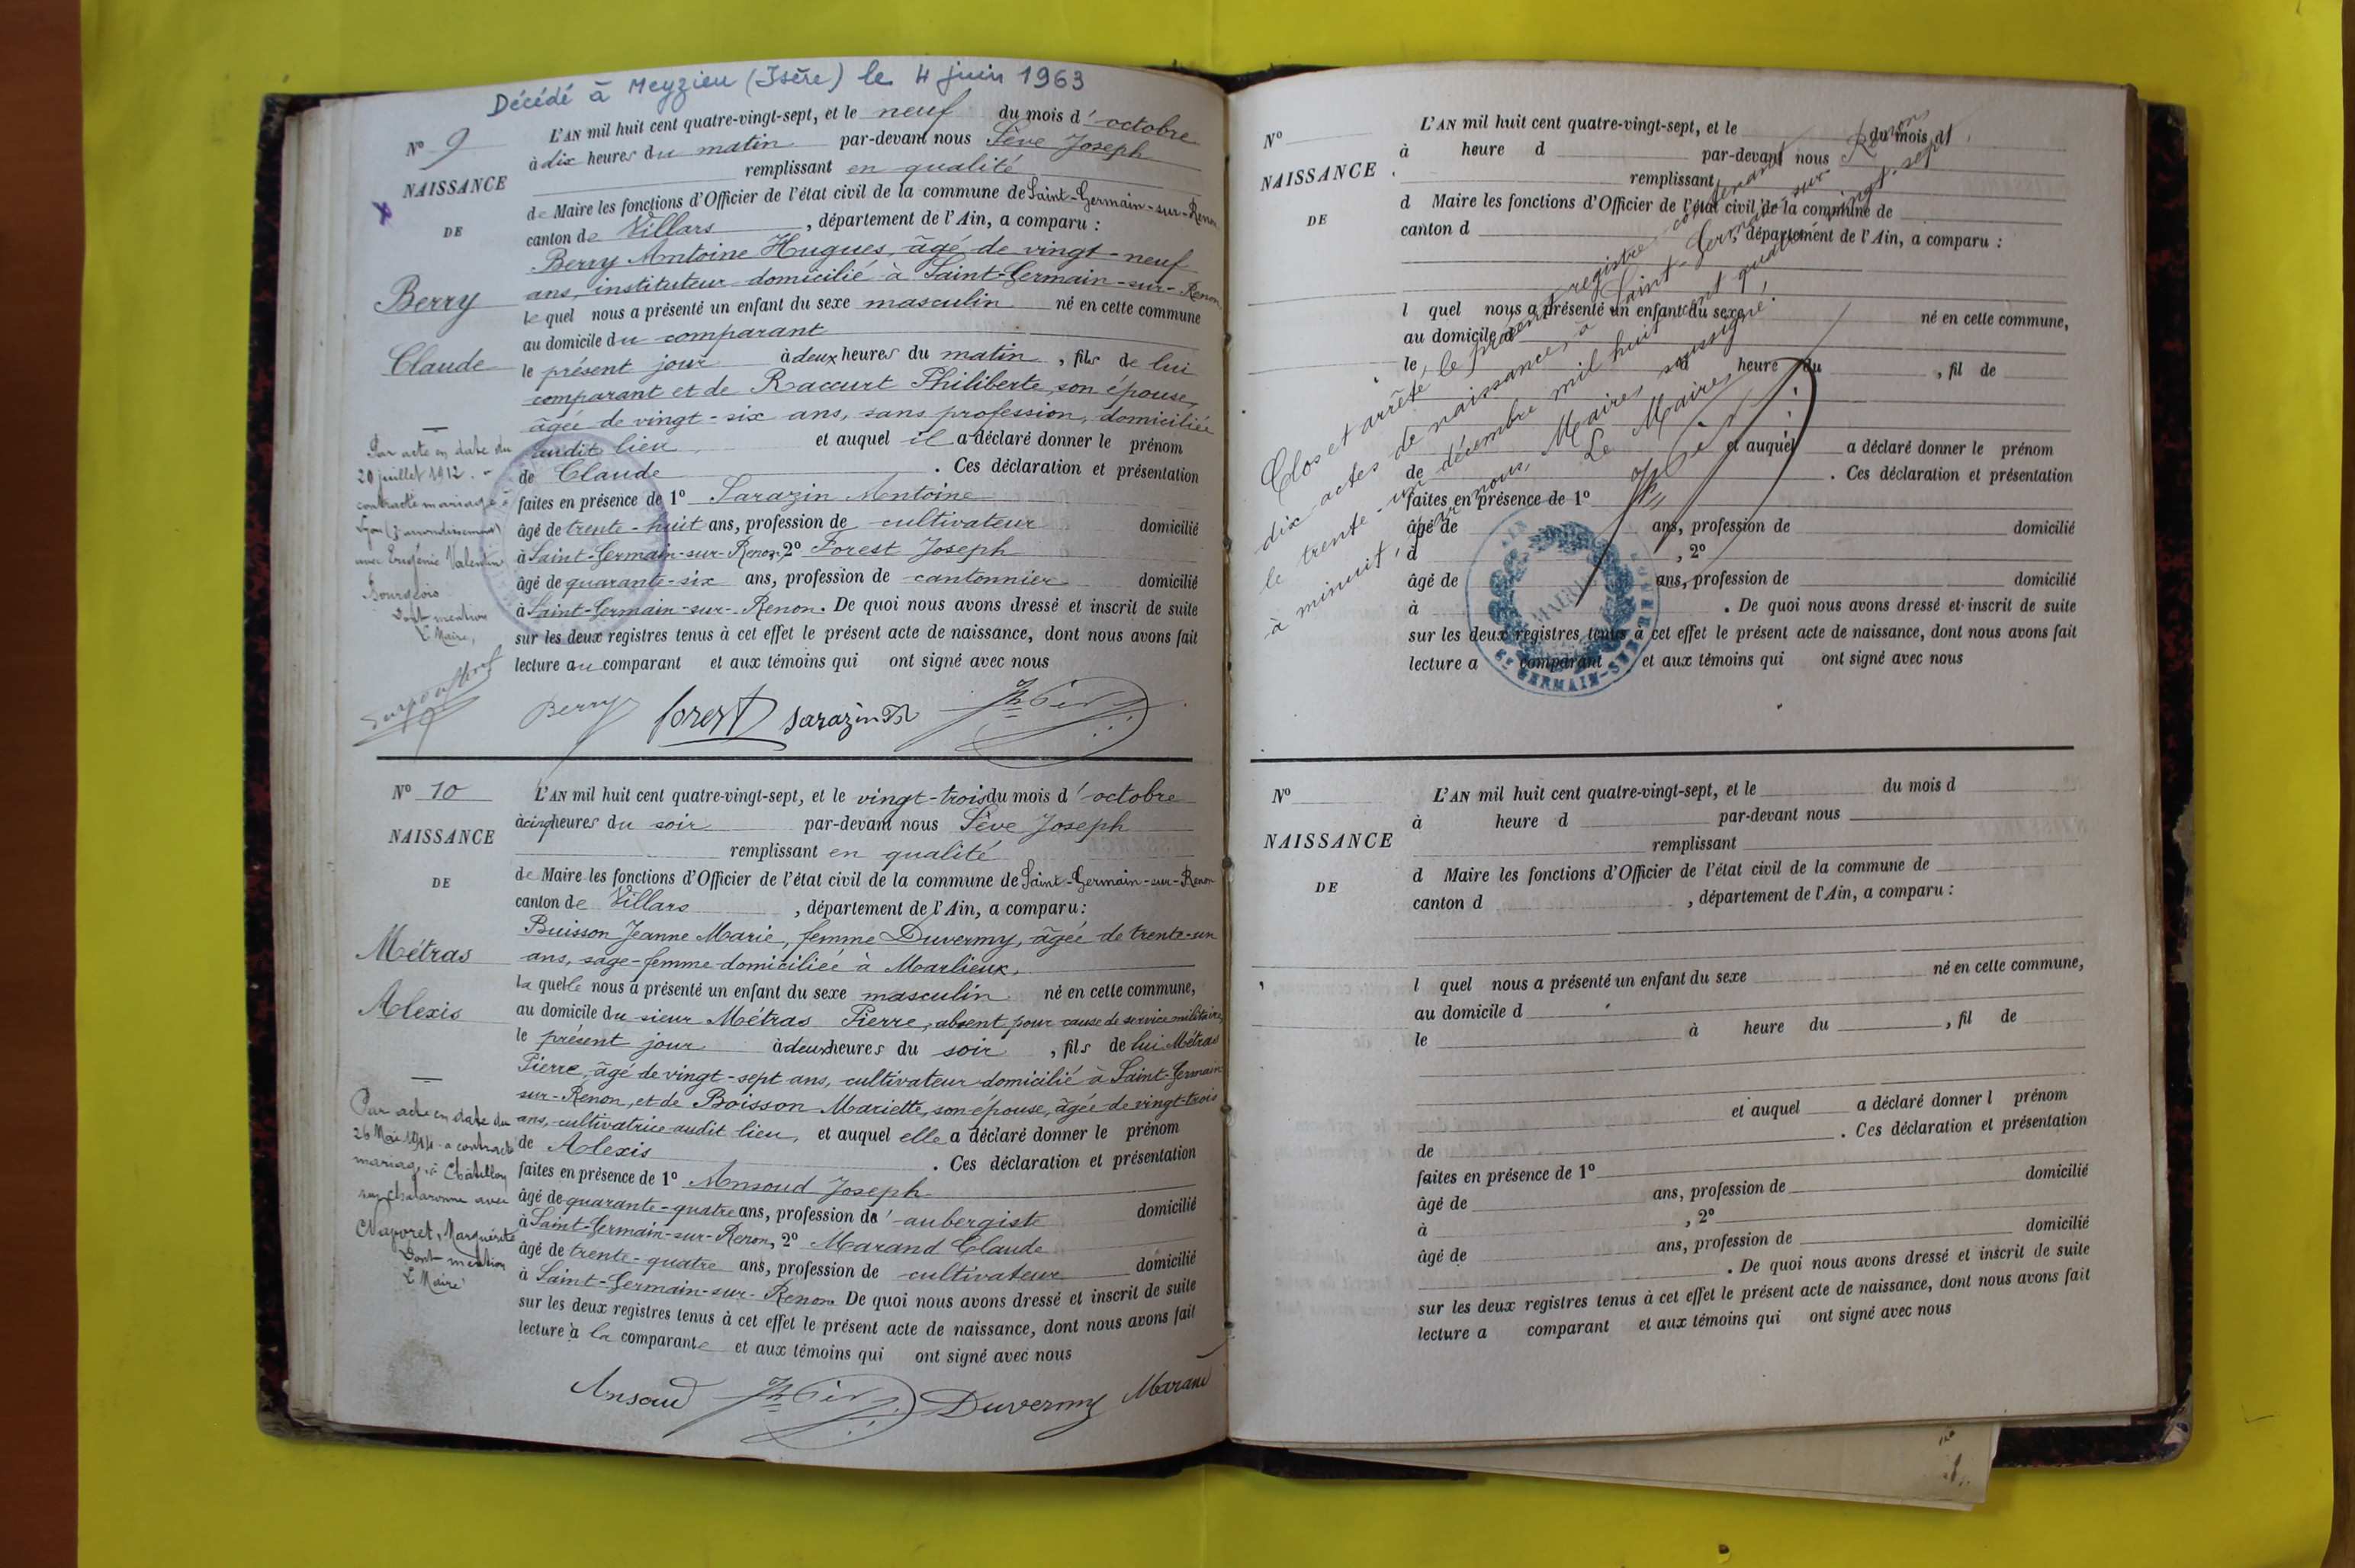 Décédé à Meyzieu (Isère) le 4 juin 1963
N° 9
NAISSANCE
DE
Berry
Claude
L'AN mil huit cent quatre-vingt-sept, et le neuf du mois d'octobre
à dix heures du matin par-devant nous Sève Joseph
remplissant en qualité
de Maire les fonctions d'Officier de l'état civil de la commune de Saint-Germain-sur-Renon
canton de Villars, département de l'Ain, a comparu :
Berry Antoine Hugues, âgé de vingt-neuf
ans, instituteur domicilié à Saint-Germain-sur-Renon
lequel nous a présenté un enfant du sexe masculin né en cette commune
au domicile du comparant
le présent jour à deux heures du matin, fils de lui
comparant et de Raccurt Philiberte, son épouse,
âgée de vingt-six ans, sans profession, domiciliée
audit lieu, et auquel il a déclaré donner le prénom
de Claude. Ces déclaration et présentation
faites en présence de 1° Sarazin Antoine
âgé de trente-huit ans, profession de cultivateur domicilié
à Saint-Germain-sur-Renon, 2° Forest Joseph
âgé de quarante-six ans, profession de cantonnier domicilié
à Saint-Germain-sur-Renon. De quoi nous avons dressé et inscrit de suite
sur les deux registres tenus à cet effet le présent acte de naissance, dont nous avons fait
lecture au comparant et aux témoins qui ont signé avec nous
Par acte en date du
20 juillet 1912
contracté mariage à
Lyon (3 arrondissement)
avec Eugénie Valentine
Bourgeois
Dont mention
L Maire,
Berry Forest Sarazin
N° 10
NAISSANCE
DE
Métras
Alexis
L'AN mil huit cent quatre-vingt-sept, et le vingt-trois du mois d'octobre
à cinq heures du soir par-devant nous Sève Joseph
remplissant en qualité
de Maire les fonctions d'Officier de l'état civil de la commune de Saint-Germain-sur-Renon
canton de Villars, département de l'Ain, a comparu :
Buisson Jeanne Marie, femme Duvermy, âgée de trente-un
ans, sage-femme domiciliée à Marlieux,
laquelle nous a présenté un enfant du sexe masculin né en cette commune,
au domicile du sieur Métras Pierre, absent pour cause de service militaire,
le présent jour à deux heures du soir, fils de lui Métras
Pierre, âgé de vingt-sept ans, cultivateur domicilié à Saint-Germain
sur-Renon, et de Boisson Mariette, son épouse, âgée de vingt-trois
ans, cultivatrice audit lieu, et auquel elle a déclaré donner le prénom
de Alexis. Ces déclaration et présentation
faites en présence de 1° Ansoud Joseph
âgé de quarante-quatre ans, profession d'aubergiste domicilié
à Saint-Germain-sur-Renon, 2° Marand Claude
âgé de trente-quatre ans, profession de cultivateur domicilié
à Saint-Germain-sur-Renon. De quoi nous avons dressé et inscrit de suite
sur les deux registres tenus à cet effet le présent acte de naissance, dont nous avons fait
lecture à la comparante et aux témoins qui ont signé avec nous
Par acte en date du
26 Mai 1914 a contracté
mariage à Châtillon
sur Chalaronne avec
Marguerite
Dont mention
L Maire
Ansoud Duvermy Marand
N°
NAISSANCE
DE
L'AN mil huit cent quatre-vingt-sept, et le du mois d
à heure d par-devant nous
remplissant
d Maire les fonctions d'Officier de l'état civil de la commune de
canton d, département de l'Ain, a comparu :
l quel nous a présenté un enfant du sexe né en cette commune,
au domicile d
le à heure du, fil de
et auquel a déclaré donner le prénom
de. Ces déclaration et présentation
faites en présence de 1°
âgé de ans, profession de domicilié
à, 2°
âgé de ans, profession de domicilié
à. De quoi nous avons dressé et inscrit de suite
sur les deux registres tenus à cet effet le présent acte de naissance, dont nous avons fait
lecture a comparant et aux témoins qui ont signé avec nous
Clos et arrêté le présent registre contenant
dix actes de naissances, à Saint-Germain-sur-Renon
le trente-un décembre mil huit cent quatre-vingt-sept
à minuit, par nous, Maire, soussigné.
Le Maire,
MAIRIE
ST GERMAIN-SUR-RENON
AIN
N°
NAISSANCE
DE
L'AN mil huit cent quatre-vingt-sept, et le du mois d
à heure d par-devant nous
remplissant
d Maire les fonctions d'Officier de l'état civil de la commune de
canton d, département de l'Ain, a comparu :
l quel nous a présenté un enfant du sexe né en cette commune,
au domicile d
le à heure du, fil de
et auquel a déclaré donner l prénom
de. Ces déclaration et présentation
faites en présence de 1°
âgé de ans, profession de domicilié
à, 2°
âgé de ans, profession de domicilié
. De quoi nous avons dressé et inscrit de suite
sur les deux registres tenus à cet effet le présent acte de naissance, dont nous avons fait
lecture a comparant et aux témoins qui ont signé avec nous